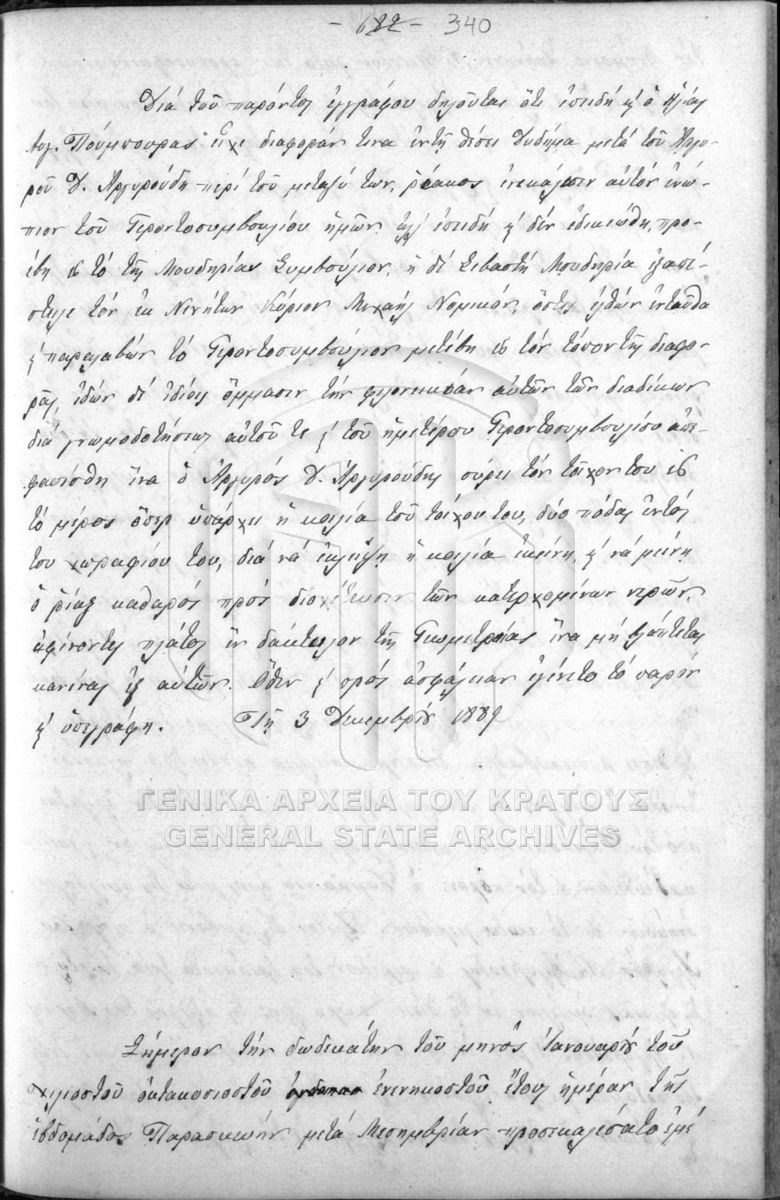 - 682 - 340
Διά τοῦ παρόντος ἐγγράφου δηλοῦται ὅτι ἐπειδή κ' ὁ Ἠλίας
Αυγ. Πούμπουρας εἶχε διαφοράν τινα ἐν τῇ θέσει Δυδήμα μετά τοῦ Ἀργυ-
ροῦ Δ. Ἀργυρούδη περί τοῦ μεταξύ των ρύακος ἐνεκάλεσεν αὐτόν ἐνώ-
πιον τοῦ Γεροντοσυμβουλίου ἡμῶν ἀλλ' ἐπειδή κ' δέν ἐδικαιώθη, προ-
έβη εἰς τό τῆς Μουδηρίας Συμβούλιον, ἡ δέ Σεβαστή Μουδηρία ἐξαπέ-
στειλε τόν ἐκ Νενήτων Κύριον Μιχαήλ Νομικόν, ὅστις ἐλθών ἐνταῦθα
κ' παραλαβών τό Γεροντοσυμβούλιον μετέβη εἰς τόν τόπον τῆς διαφο-
ρᾶς, ἰδών δέ ἰδίοις ὄμμασιν τήν φιλονεικίαν αὐτῶν τῶν διαδίκων
διά γνωμοδοτήσεως αὐτοῦ τε κ' τοῦ ἡμετέρου Γεροντοσυμβουλίου ἀπε-
φασίσθη ἵνα ὁ Ἀργυρός Δ. Ἀργυρούδης σύρει τόν τοῖχον του εἰς
τό μέρος ὅπερ ὑπάρχει ἡ κοιλία τοῦ τοίχου του, δύο πόδας ἐντός
του χωραφιου του, διά νά ἐκλείψῃ ἡ κοιλία ἐκείνη, κ' νά μείνῃ
ὁ ρύαξ καθαρός πρός διοχέτευσιν τῶν κατερχομένων νερῶν,
ἀφίνοντες πλάτος ἕν δάκτυλον τῆς Γεωμετρίας ἵνα μή βλάπτεται
κανένας ἐξ αὐτῶν. Ὅθεν κ' πρός ἀσφάλειαν ἐγένετο τό παρόν
κ' ὑπεγράφη. Τῇ 3 Δεκεμβρίου 1889
ΓΕΝΙΚΑ ΑΡΧΕΙΑ ΤΟΥ ΚΡΑΤΟΥΣ
GENERAL STATE ARCHIVES
Σήμερον τήν δωδεκάτην τοῦ μηνός Ἰανουαρίου τοῦ
χιλιοστοῦ ὀκτακοσιοστοῦ ἐνενηκοστοῦ ἔτους ἡμέραν τῆς
ἑβδομάδος Παρασκευήν μετά Μεσημβρίαν προσεκαλέσατο ἐμέ